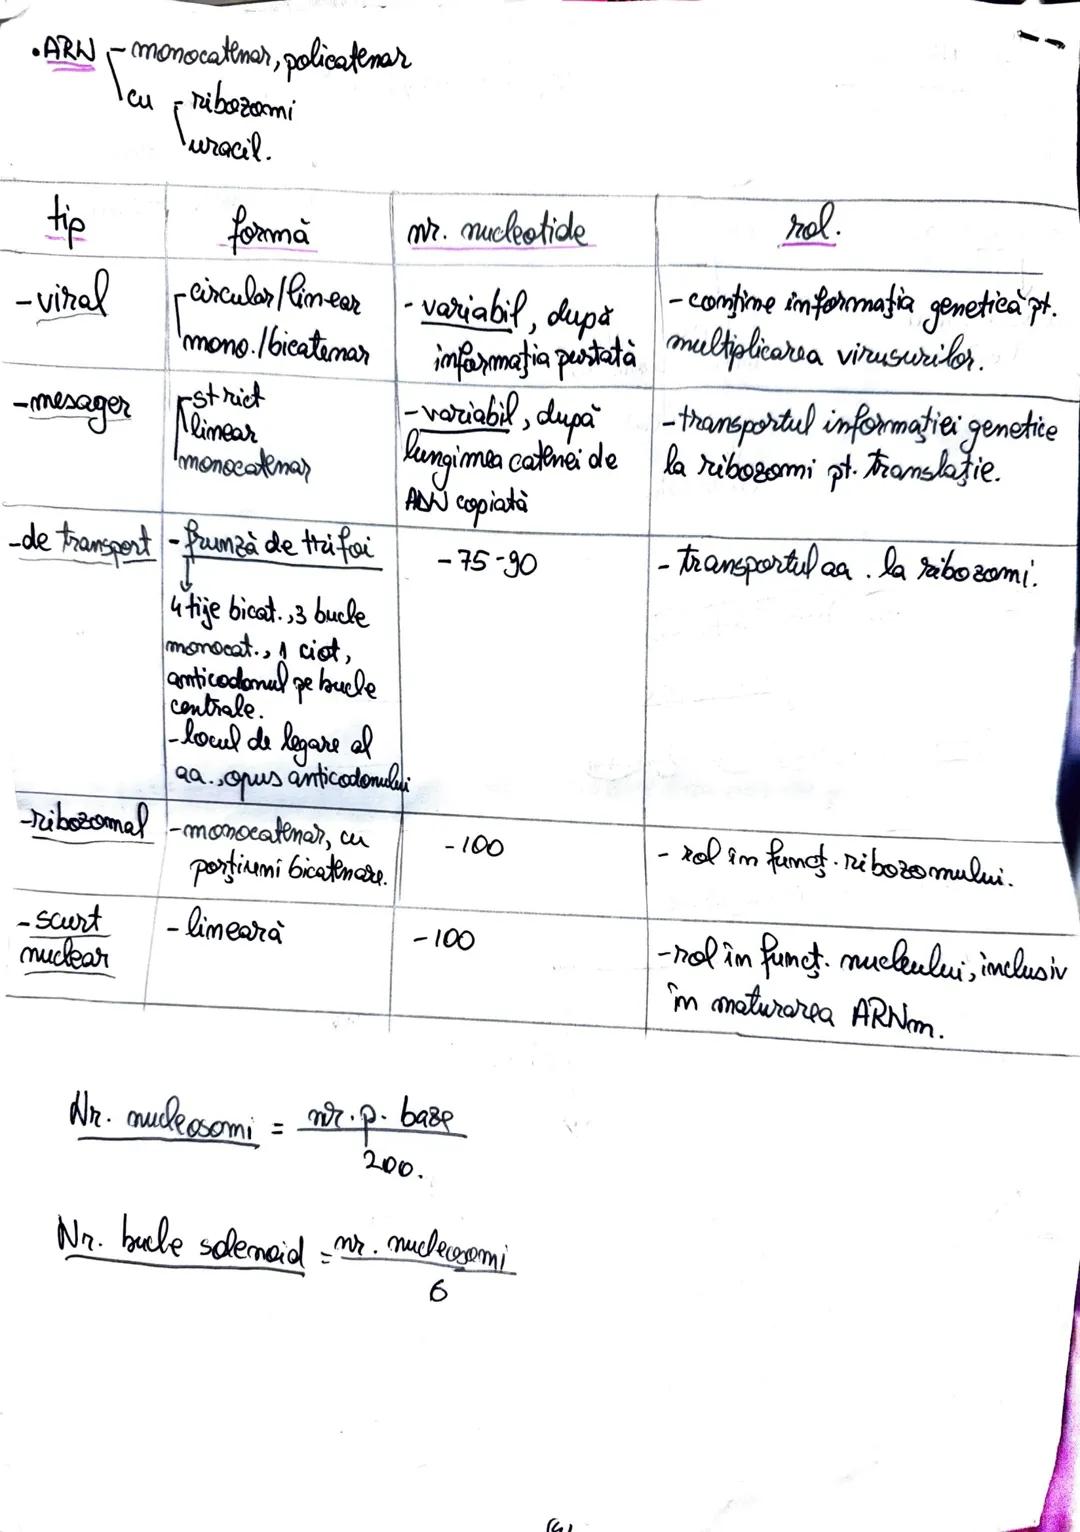 •ARN - monocatenar, policatenar
cu - ribozomi
uracil.
tip formă nr. nucleotide rol.
-viral
- circular/linear
mono./bicatenar
- variabil, după
informația purtată
- conține informația genetică pt.
multiplicarea virusurilor.
-mesager
- strict
linear
monocatenar
- variabil, după
lungimea catenei de
ADN copiată
- transportul informației genetice
la ribozomi pt. translație.
-de transport
- frunză de trifoi
4 tije bicat., 3 bucle
monocat., 1 ciot,
anticodonul pe bucle
centrale.
- locul de legare al
aa., opus anticodonului
- 75-90
- transportul aa. la ribozomi.
-ribozomal
- monocatenar, cu
porțiuni bicatenare.
- 100
- rol în funcț. ribozomului.
- scurt
nuclear
- lineară
- 100
- rol în funcț. nucleului, inclusiv
în maturarea ARNm.
Nr. nucleosomi = nr. p. baze
200.
Nr. bucle solenoid = nr. nucleosomi
6